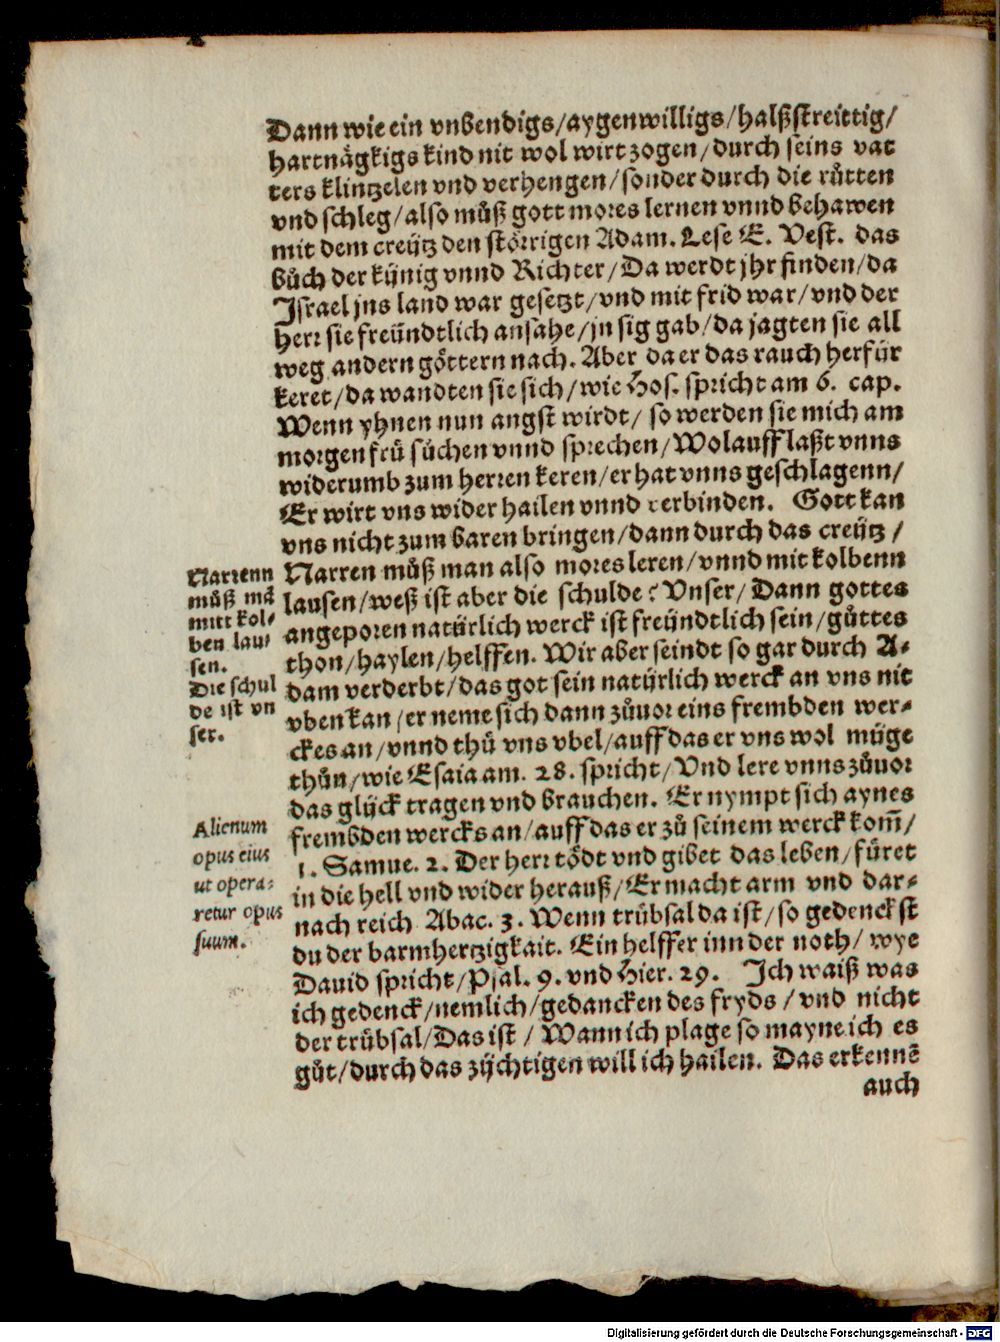 Dann wie ein vnbendigs/aygenwilligs/halßstreittig/
hartnägkigs kind nit wol wirt zogen/durch seins vat
ters klintzelen vnd verhengen/sonder durch die růtten
vnd schleg/also můß gott mores lernen vnnd behawen
mit dem creütz den störrigen Adam. Lese E. Vest. das
bůch der künig vnnd Richter/Da werdt jhr finden/da
Israel jns land war gesetzt/vnd mit frid war/vnd der
herr sie freündtlich ansahe/jn sig gab/da jagten sie all
weg andern göttern nach. Aber da er das rauch herfür
keret/da wandten sie sich/wie Hos. spricht am 6. cap.
Wenn yhnen nun angst wirdt/ so werden sie mich am
morgen frü sůchen vnnd sprechen/Wolauff laßt vnns
widerumb zum herren keren/er hat vnns geschlagenn/
Er wirt vns wider hailen vnnd verbinden. Gott kan
vns nicht zum baren bringen/dann durch das creütz/
Narren můß man also mores leren/vnnd mit kolbenn
lausen/weß ist aber die schulde? Vnser/Dann gottes
angeporen natürlich werck ist freündtlich sein/gůttes
thon/haylen/helffen. Wir aber seindt so gar durch A-
dam verderbt/das got sein natürlich werck an vns nit
vben kan/er neme sich dann zůuor eins frembden wer-
ckes an/vnnd thů vns vbel/auff das er vns wol müge
thůn/wie Esaia am. 28. spricht/Vnd lere vnns zůuor
das glück tragen vnd brauchen. Er nympt sich aynes
frembden wercks an/auff das er zů seinem werck kom̃/
1. Samue. 2. Der herr tödt vnd gibet das leben/füret
in die hell vnd wider herauß/Er macht arm vnd dar-
nach reich Abac. 3. Wenn trübsal da ist/so gedenckst
du der barmhertzigkait. Ein helffer inn der noth/ wye
Dauid spricht/Psal. 9. vnd Hier. 29. Ich waiß was
ich gedenck/nemlich/gedancken des fryds/vnd nicht
der trübsal/Das ist/Wann ich plage so mayne ich es
gůt/durch das züchtigen will ich hailen. Das erkennẽ
auch
Narrenn
můß mã
mitt kol-
ben lau-
sen.
Die schul
de ist vn
ser.
Alienum
opus eius
ut opera-
retur opus
suum.
Digitalisierung gefördert durch die Deutsche Forschungsgemeinschaft - DFG